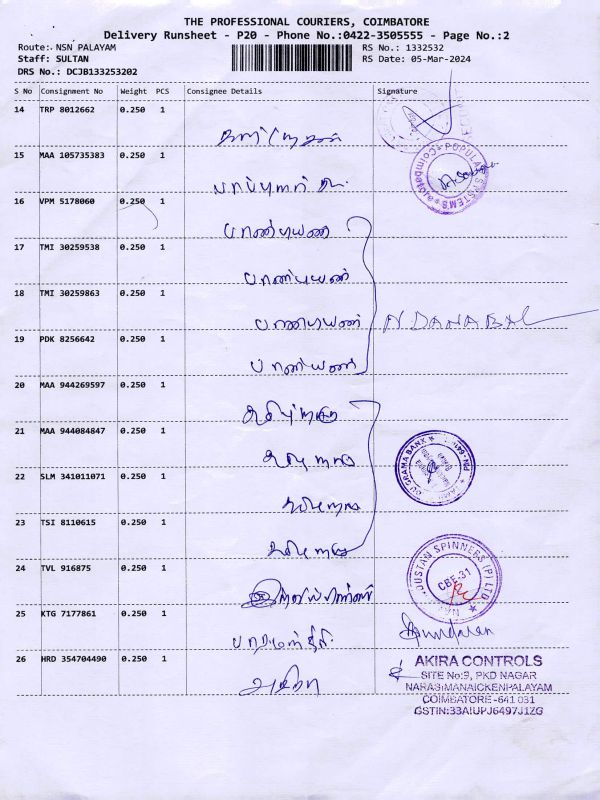 THE PROFESSIONAL COURIERS, COIMBATORE
Delivery Runsheet - P20 - Phone No.:0422-3505555 - Page No.:2
Route: NSN PALAYAM RS No.: 1332532
Staff: SULTAN RS Date: 05-Mar-2024
DRS No.: DCJB133253202
S No Consignment No Weight PCS Consignee Details Signature
14 TRP 8012662 0.250 1
15 MAA 105735383 0.250 1
POPULAR SYSTEMS
Coimbatore
16 VPM 5178060 0.250 1
பாண்டியன்
17 TMI 30259538 0.250 1
பாண்டியன்
18 TMI 30259863 0.250 1
பாண்டியன் N DANABAL
19 PDK 8256642 0.250 1
பாண்டியன்
20 MAA 944269597 0.250 1
21 MAA 944084847 0.250 1
GRAMA BANK
22 SLM 341011071 0.250 1
23 TSI 8110615 0.250 1
24 TVL 916875 0.250 1
SPINNERS (P) LTD
CBE-31
25 KTG 7177861 0.250 1
26 HRD 354704490 0.250 1
அகிரா
AKIRA CONTROLS
SITE No:9, PKD NAGAR
NARASIMANAICKENPALAYAM
COIMBATORE-641 031
GSTIN:33AIUPJ6497J1ZG